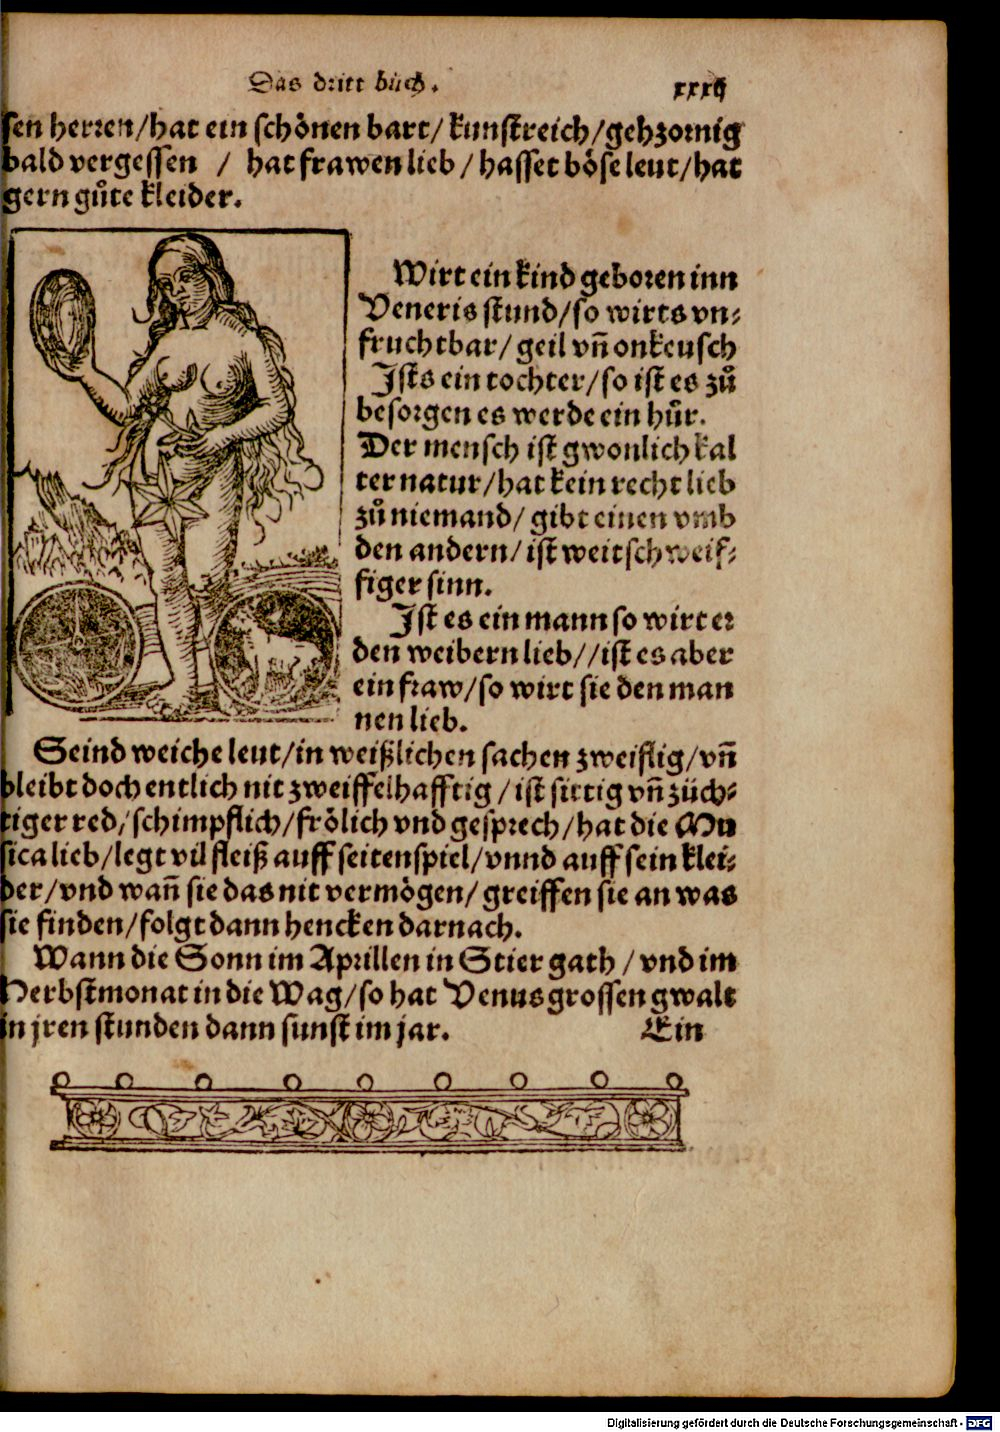 Das dritt bůch. xxxij
sen herren/hat ein schönen bart/ kunstreich/gehzornig
bald vergessen / hat frawen lieb / hasset böse leut/hat
gern gůte kleider.
Wirt ein kind geboren inn
Veneris stund/so wirts vn⸗
fruchtbar/ geil vñ onkeusch
Ists ein tochter/so ist es zů
besorgen es werde ein hůr.
Der mensch ist gwonlich kal
ter natur/hat kein recht lieb
zů niemand/ gibt einen vmb
den andern/ ist weitschweif⸗
figer sinn.
Ist es ein mann so wirt er
den weibern lieb//ist es aber
ein fraw/so wirt sie den man
nen lieb.
Seind weiche leut/in weißlichen sachen zweiflig/vñ
bleibt doch entlich nit zweiffelhafftig/ist sittig vñ züch⸗
tiger red/schimpflich/frölich vnd gesprech/hat die Mu
sica lieb/legt vil fleiß auff seitenspiel/vnnd auff sein klei⸗
der/vnd wañ sie das nit vermögen/ greiffen sie an was
sie finden/folgt dann hencken darnach.
Wann die Sonn im Aprillen in Stier gath / vnd im
Herbstmonat in die Wag/so hat Venus grossen gwalt
in jren stunden dann sunst im jar. Ein
Digitalisierung gefördert durch die Deutsche Forschungsgemeinschaft - DFG